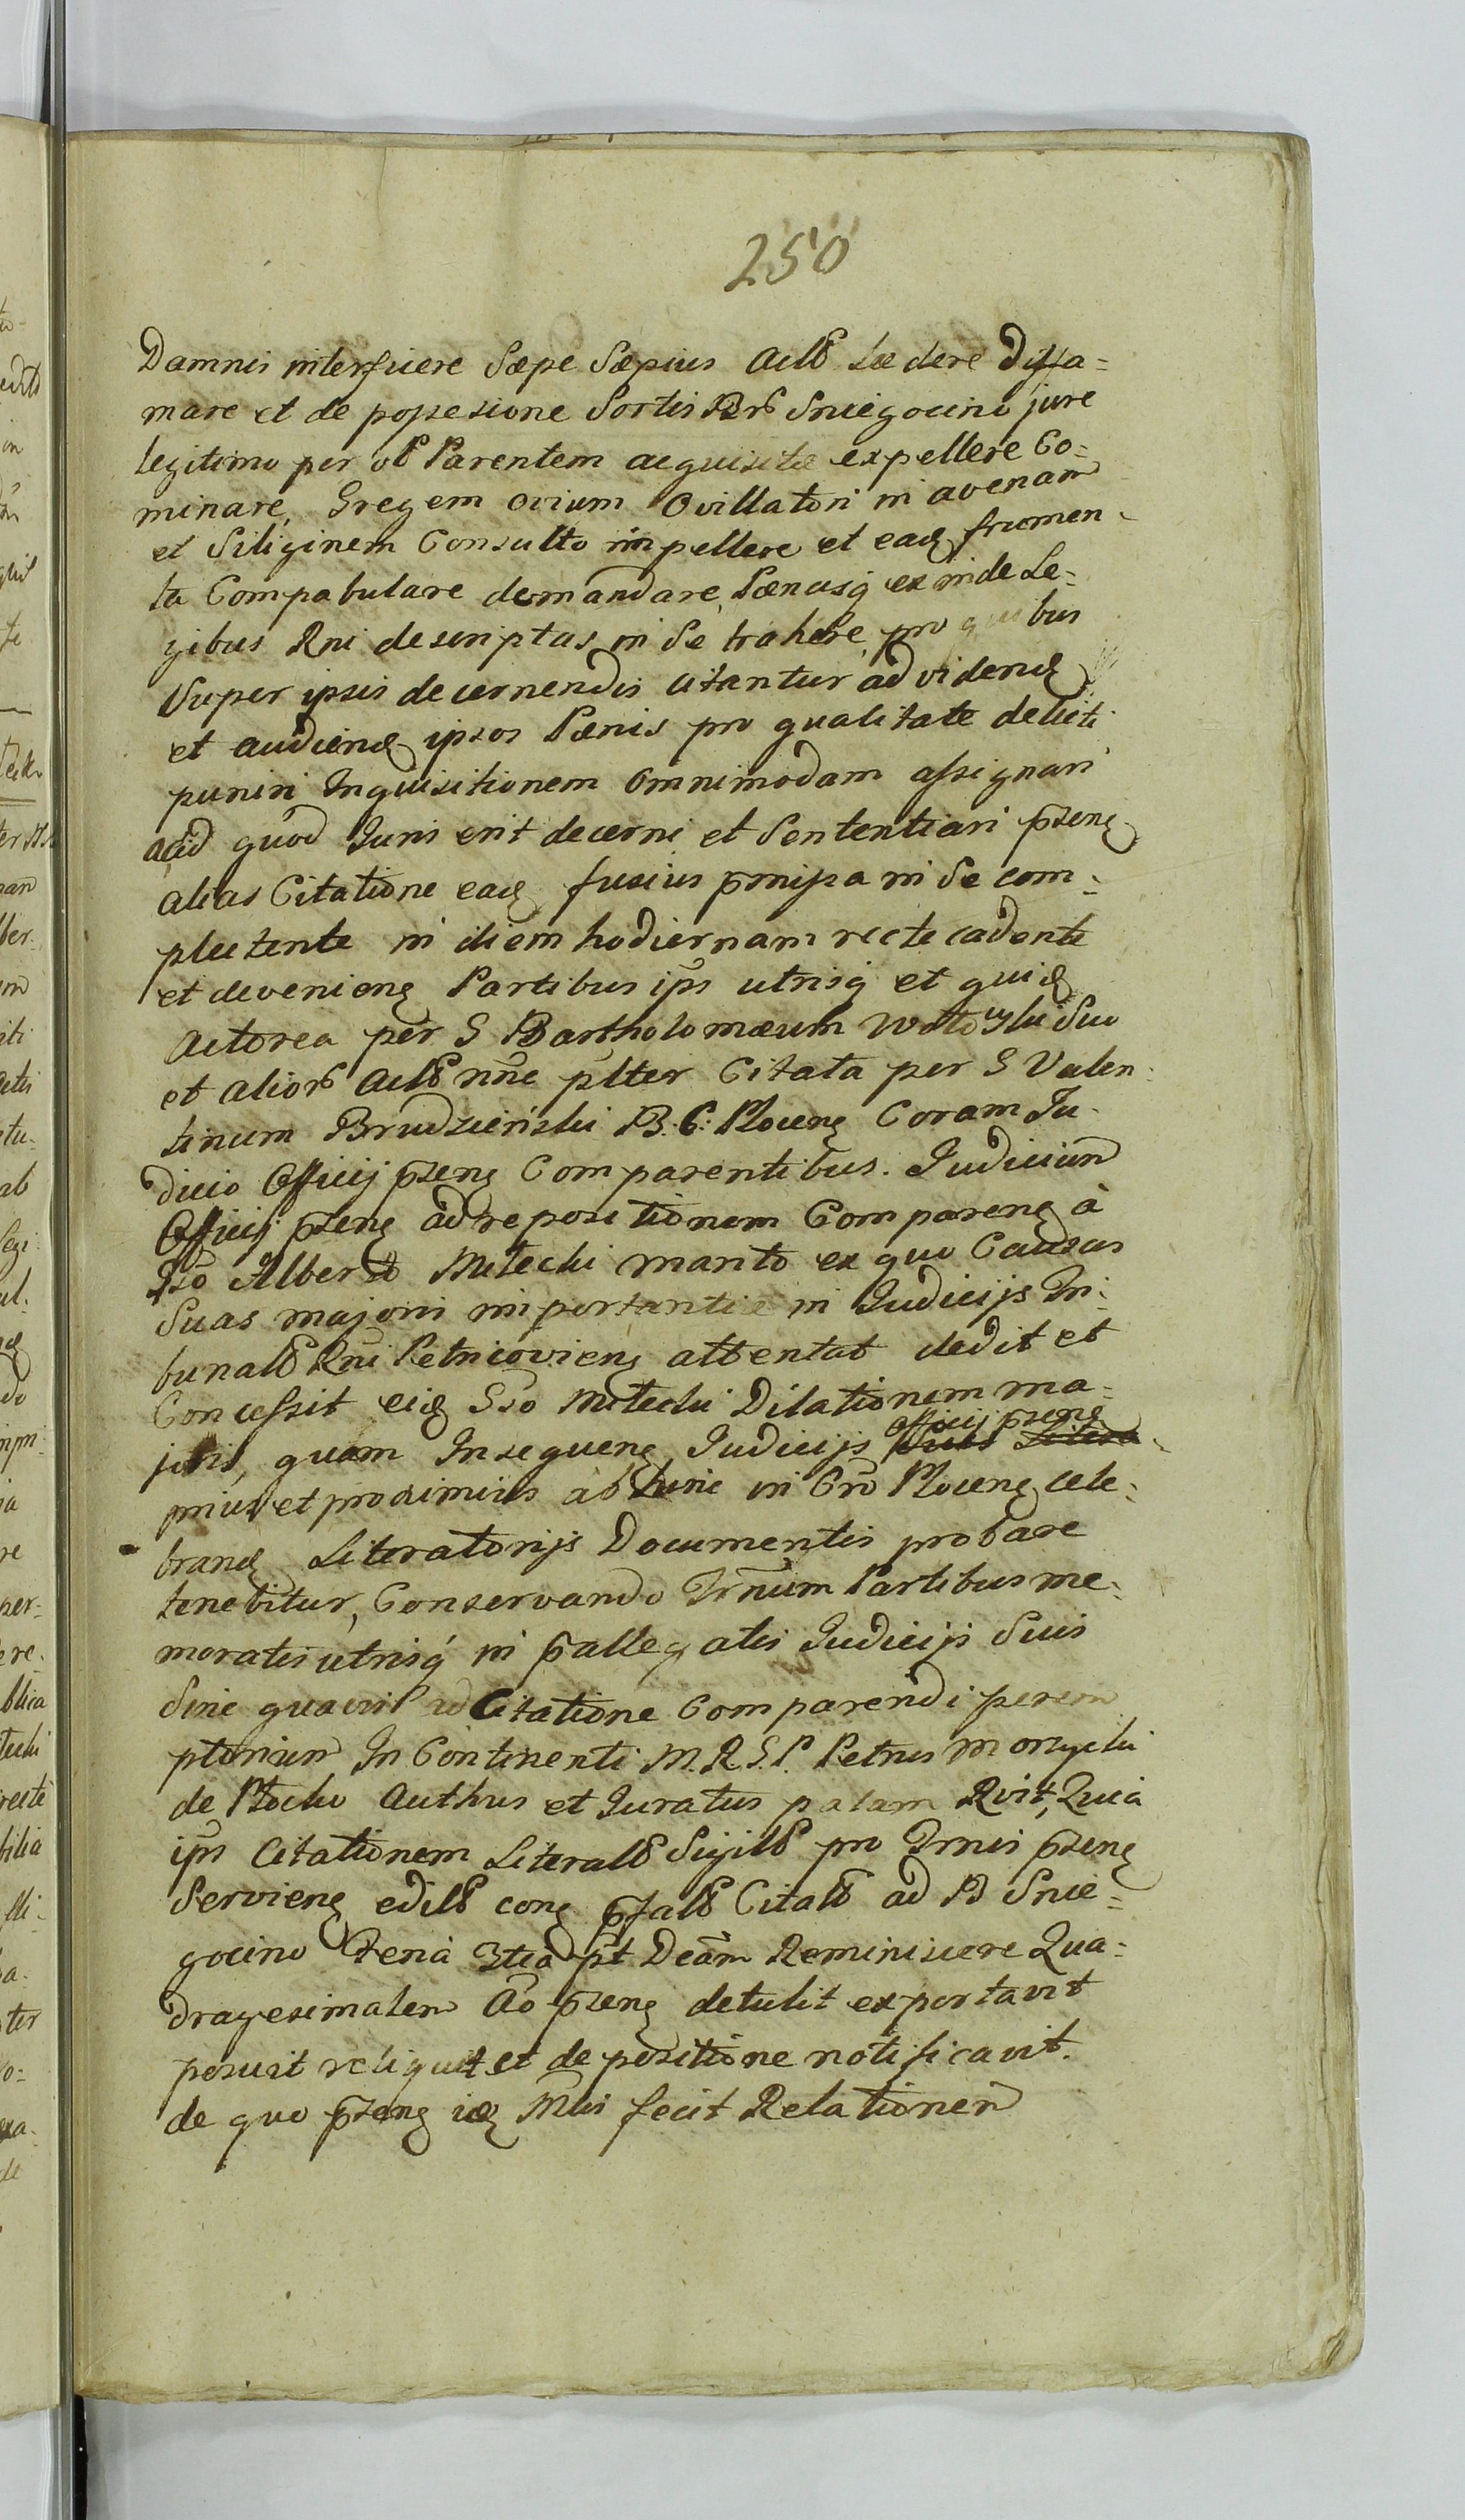 250
Damnis interfuere Sæpe Sæpius Actt Lædere Diffa=
mare et de possesione Sortis Bnr Sniegocino jure
legitimo per ol Parentem acquisitæ expellere Co=
minare, Gregem ovium Ovillatori in avenam
et Siliginem Consulto impellere et ead frumen-
ta Compabulare demandare, Pænasq ex inde Le=
gibus Rni descriptas in Se trahere, pro quibus
Super ipsis decernendis citantur ad vidend
et audiend ipsos Pænis pro qualitate delicti
puniri Inquisitionem Omnimodam assignari
acid quod Juris erit decerni et Sententiari p̄zens
alias Citatione ead fusius p̄missa in Se com=
plectente in diem hodiernam recte cadente
et deveniens Partibus ip̄s utrisq et quid
Actorea per G Bartholomæum Wotoylski Suo
et alior Actt nn̄e p̄lter Citata per G Valen-
tinum Brudzieński B. C. Plocens Coram Ju-
dicio Officij p̄zens Comparentibus. Judicium
Officij p̄zens ad repositionem Comparens à
Gsō Alberto Miłecki manto ex quo Causas
Suas majoris importantiæ in Judicijs Tri=
bunalt Rni Petricoviens attentat dedit et
Concessit eid Gso Miłecki Dilationem ma=
joris, quam Insequens Judicijs officij p̄zens
prius et proximius ab hinc in Crō Plocens cele=
brand Literatorijs Documentis probare
tenebitur, Conservando Trn̄um Partibus me=
moratis utrisq in p̄allegatis Judicijs Suis
Sine quavis ad Citatione Comparendi perem
ptorium In Continenti M.R.G.P. Petrus Morzycki
de Płocko Authus et Juratus palam Rvit, Quia
ip̄s Citationem Literalt Sigilt pro Trnis p̄zens
Serviens edilt cons p̄falt Citalt ad B Snie=
gocino Feria 3tia p̄t Dcām Reminiscere Qua=
dragesimalem Aō p̄zens detulit exportavit
posuit reliquit et de positione notificavit.
de quo p̄zens id Mlis fecit Relationem